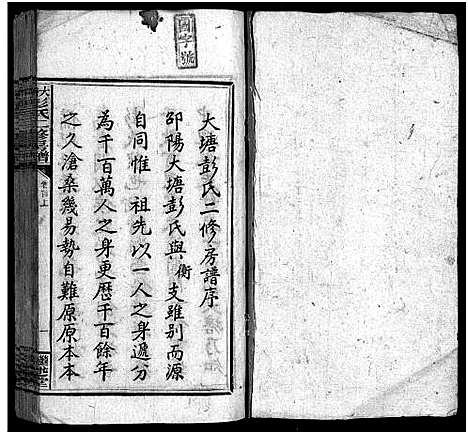 大塘彭氏二修房譜序
邵陽大塘彭氏與衡支雖別而源
自同惟 祖先以一人之身遞分
為千百萬人之身更歷千百餘年
之久滄桑幾易勢自難原原本本
國字號
大彭氏二修房譜
卷首上
一